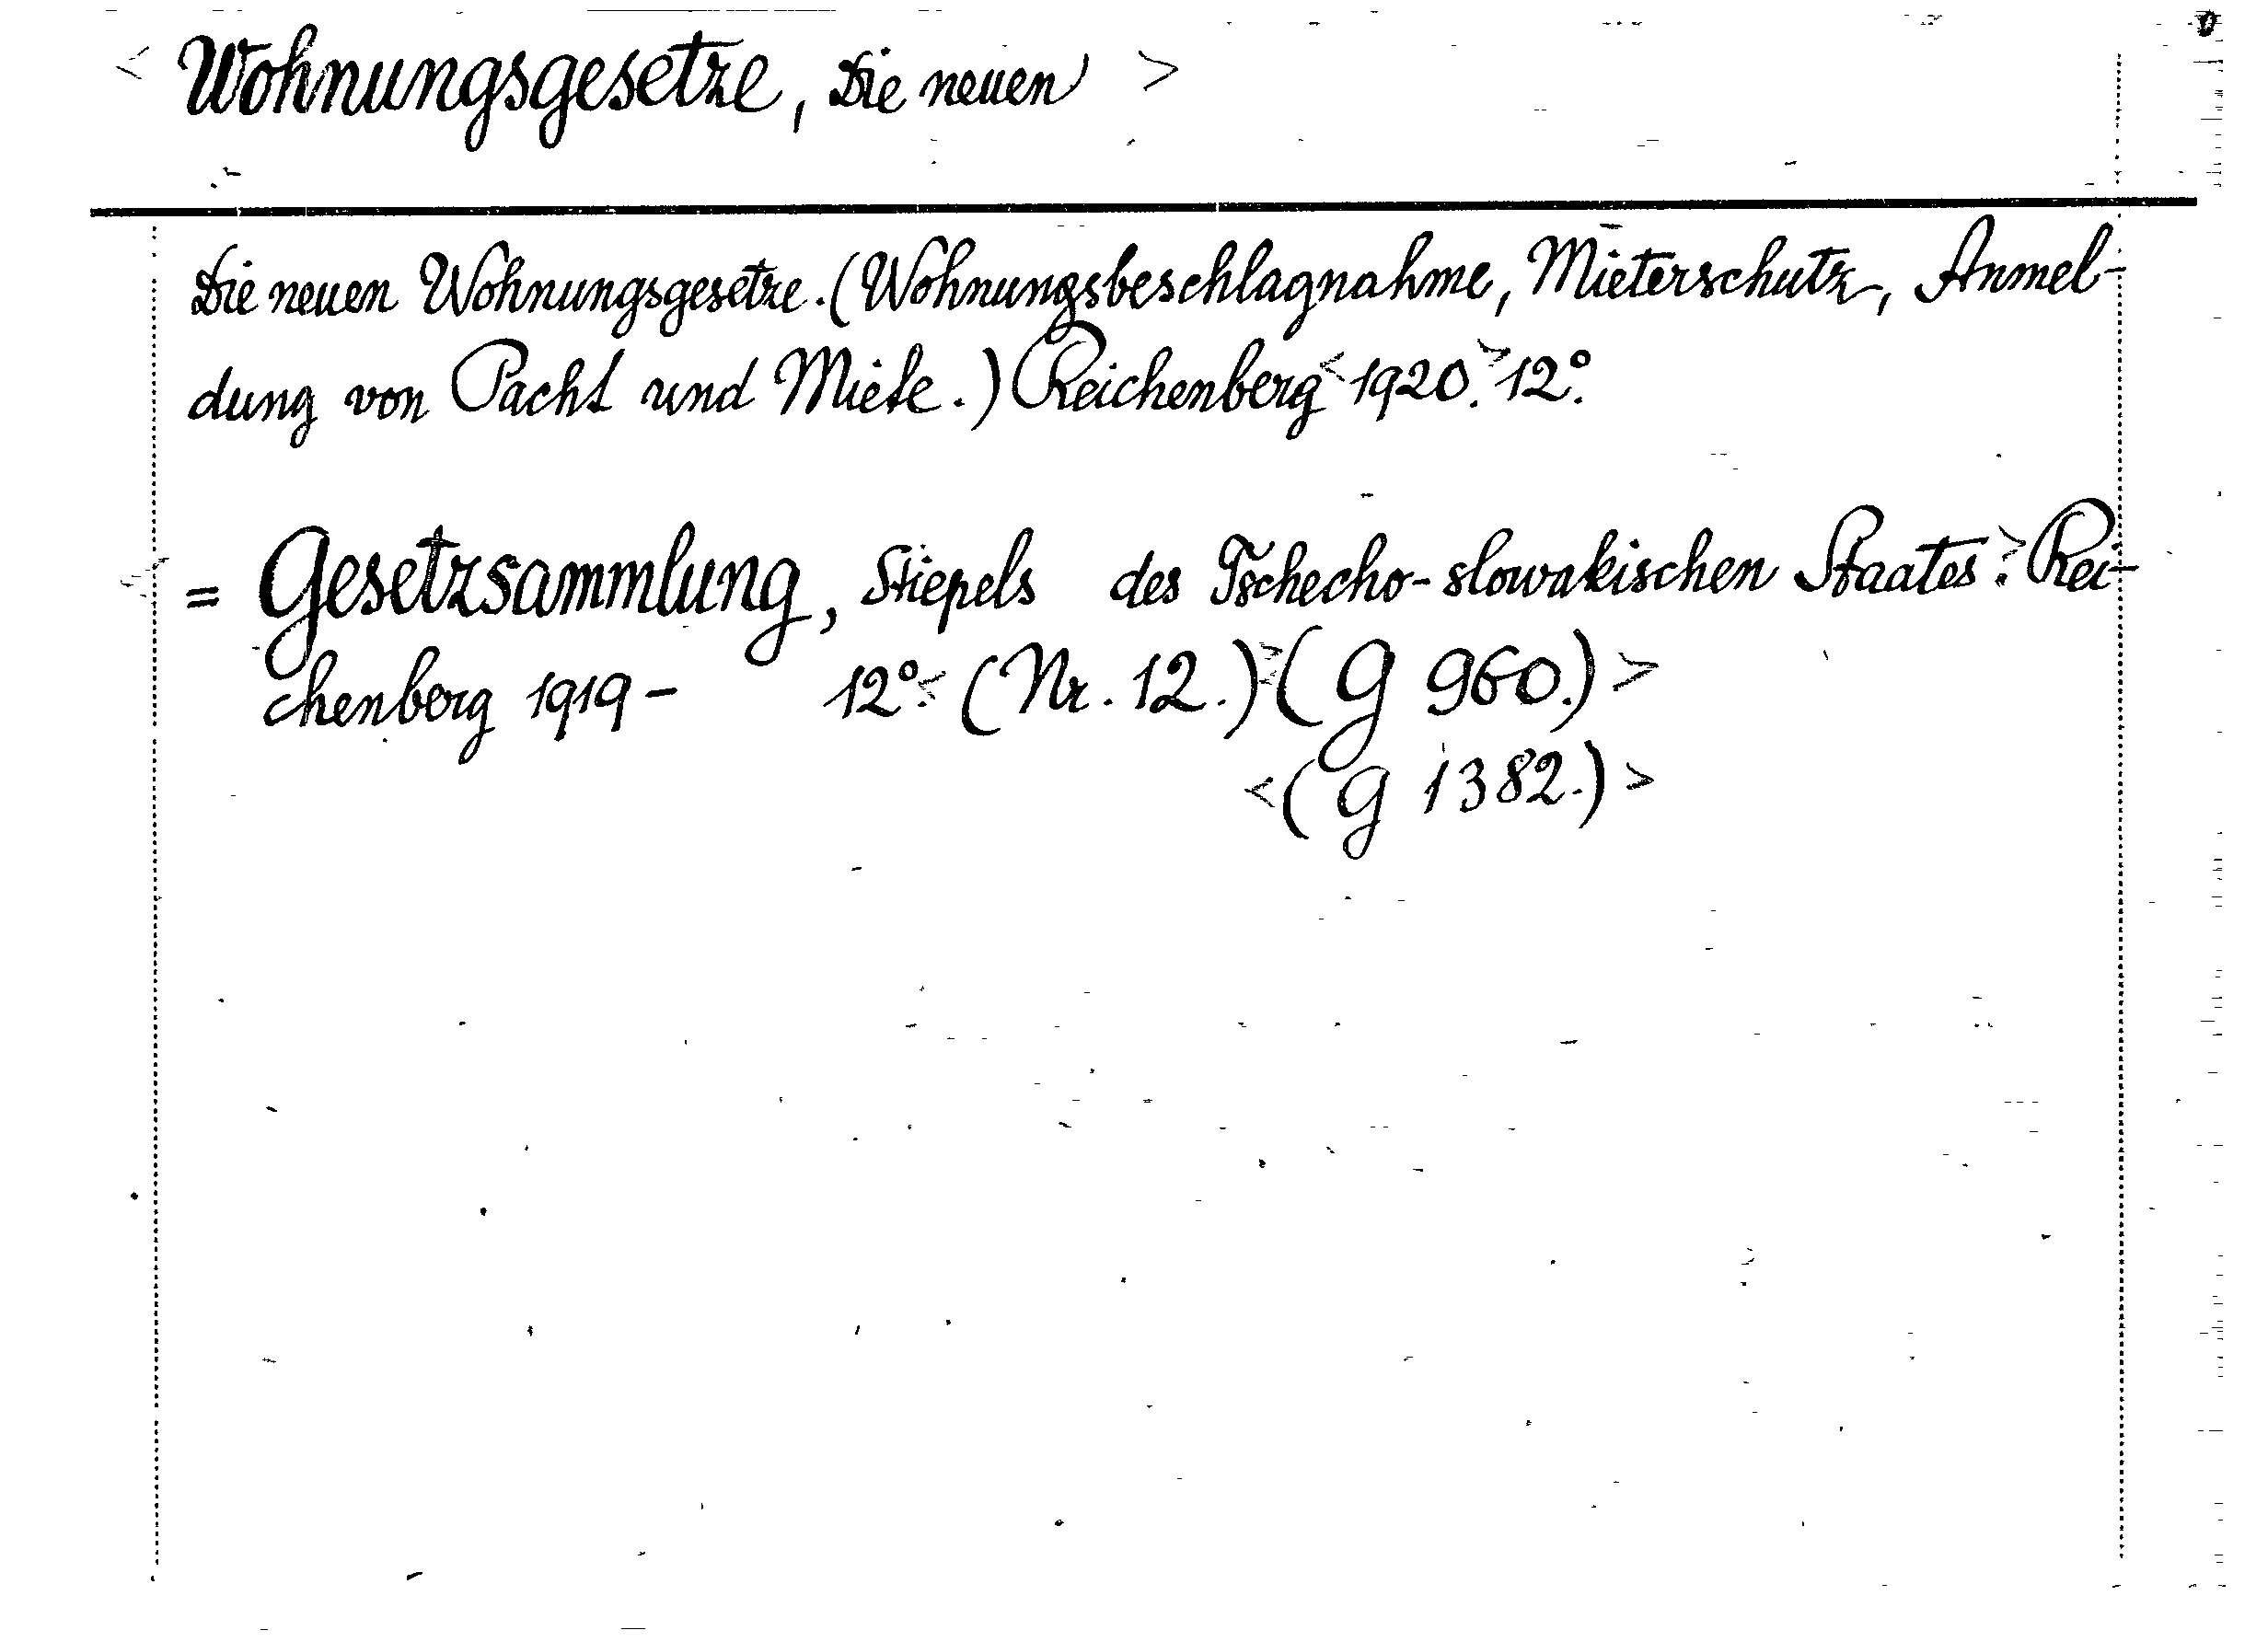 < Wohnungsgesetze, Die neuen >
Die neuen Wohnungsgesetze. (Wohnungsbeschlagnahme, Mieterschutz, Anmel-
dung von Pacht und Miete.) Reichenberg < 1920. > 12°.
= Gesetzsammlung, Stiepels des Tschecho-slowakischen Staates. > Rei-
chenberg 1919 - 12°. < (Nr. 12.) > (G 960.) >
< (G 1382.) >